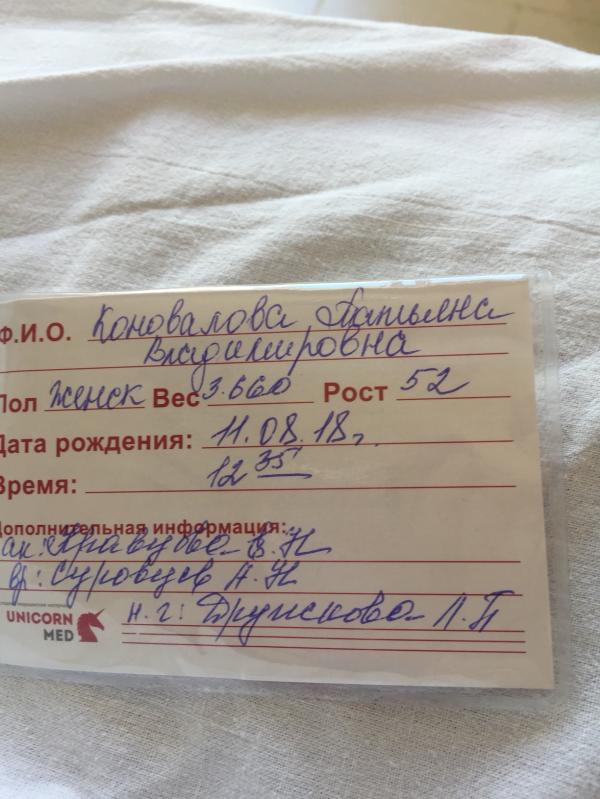 Ф.И.О. Коновалова Татьяна
Владимировна
Пол женск Вес 3.660 Рост 52
Дата рождения: 11.08.18г.
Время: 12 35
Дополнительная информация:
ак: Кравцова Е.Н
вр: Суровцев А.Н
н.г: Л.П
UNICORN
MED